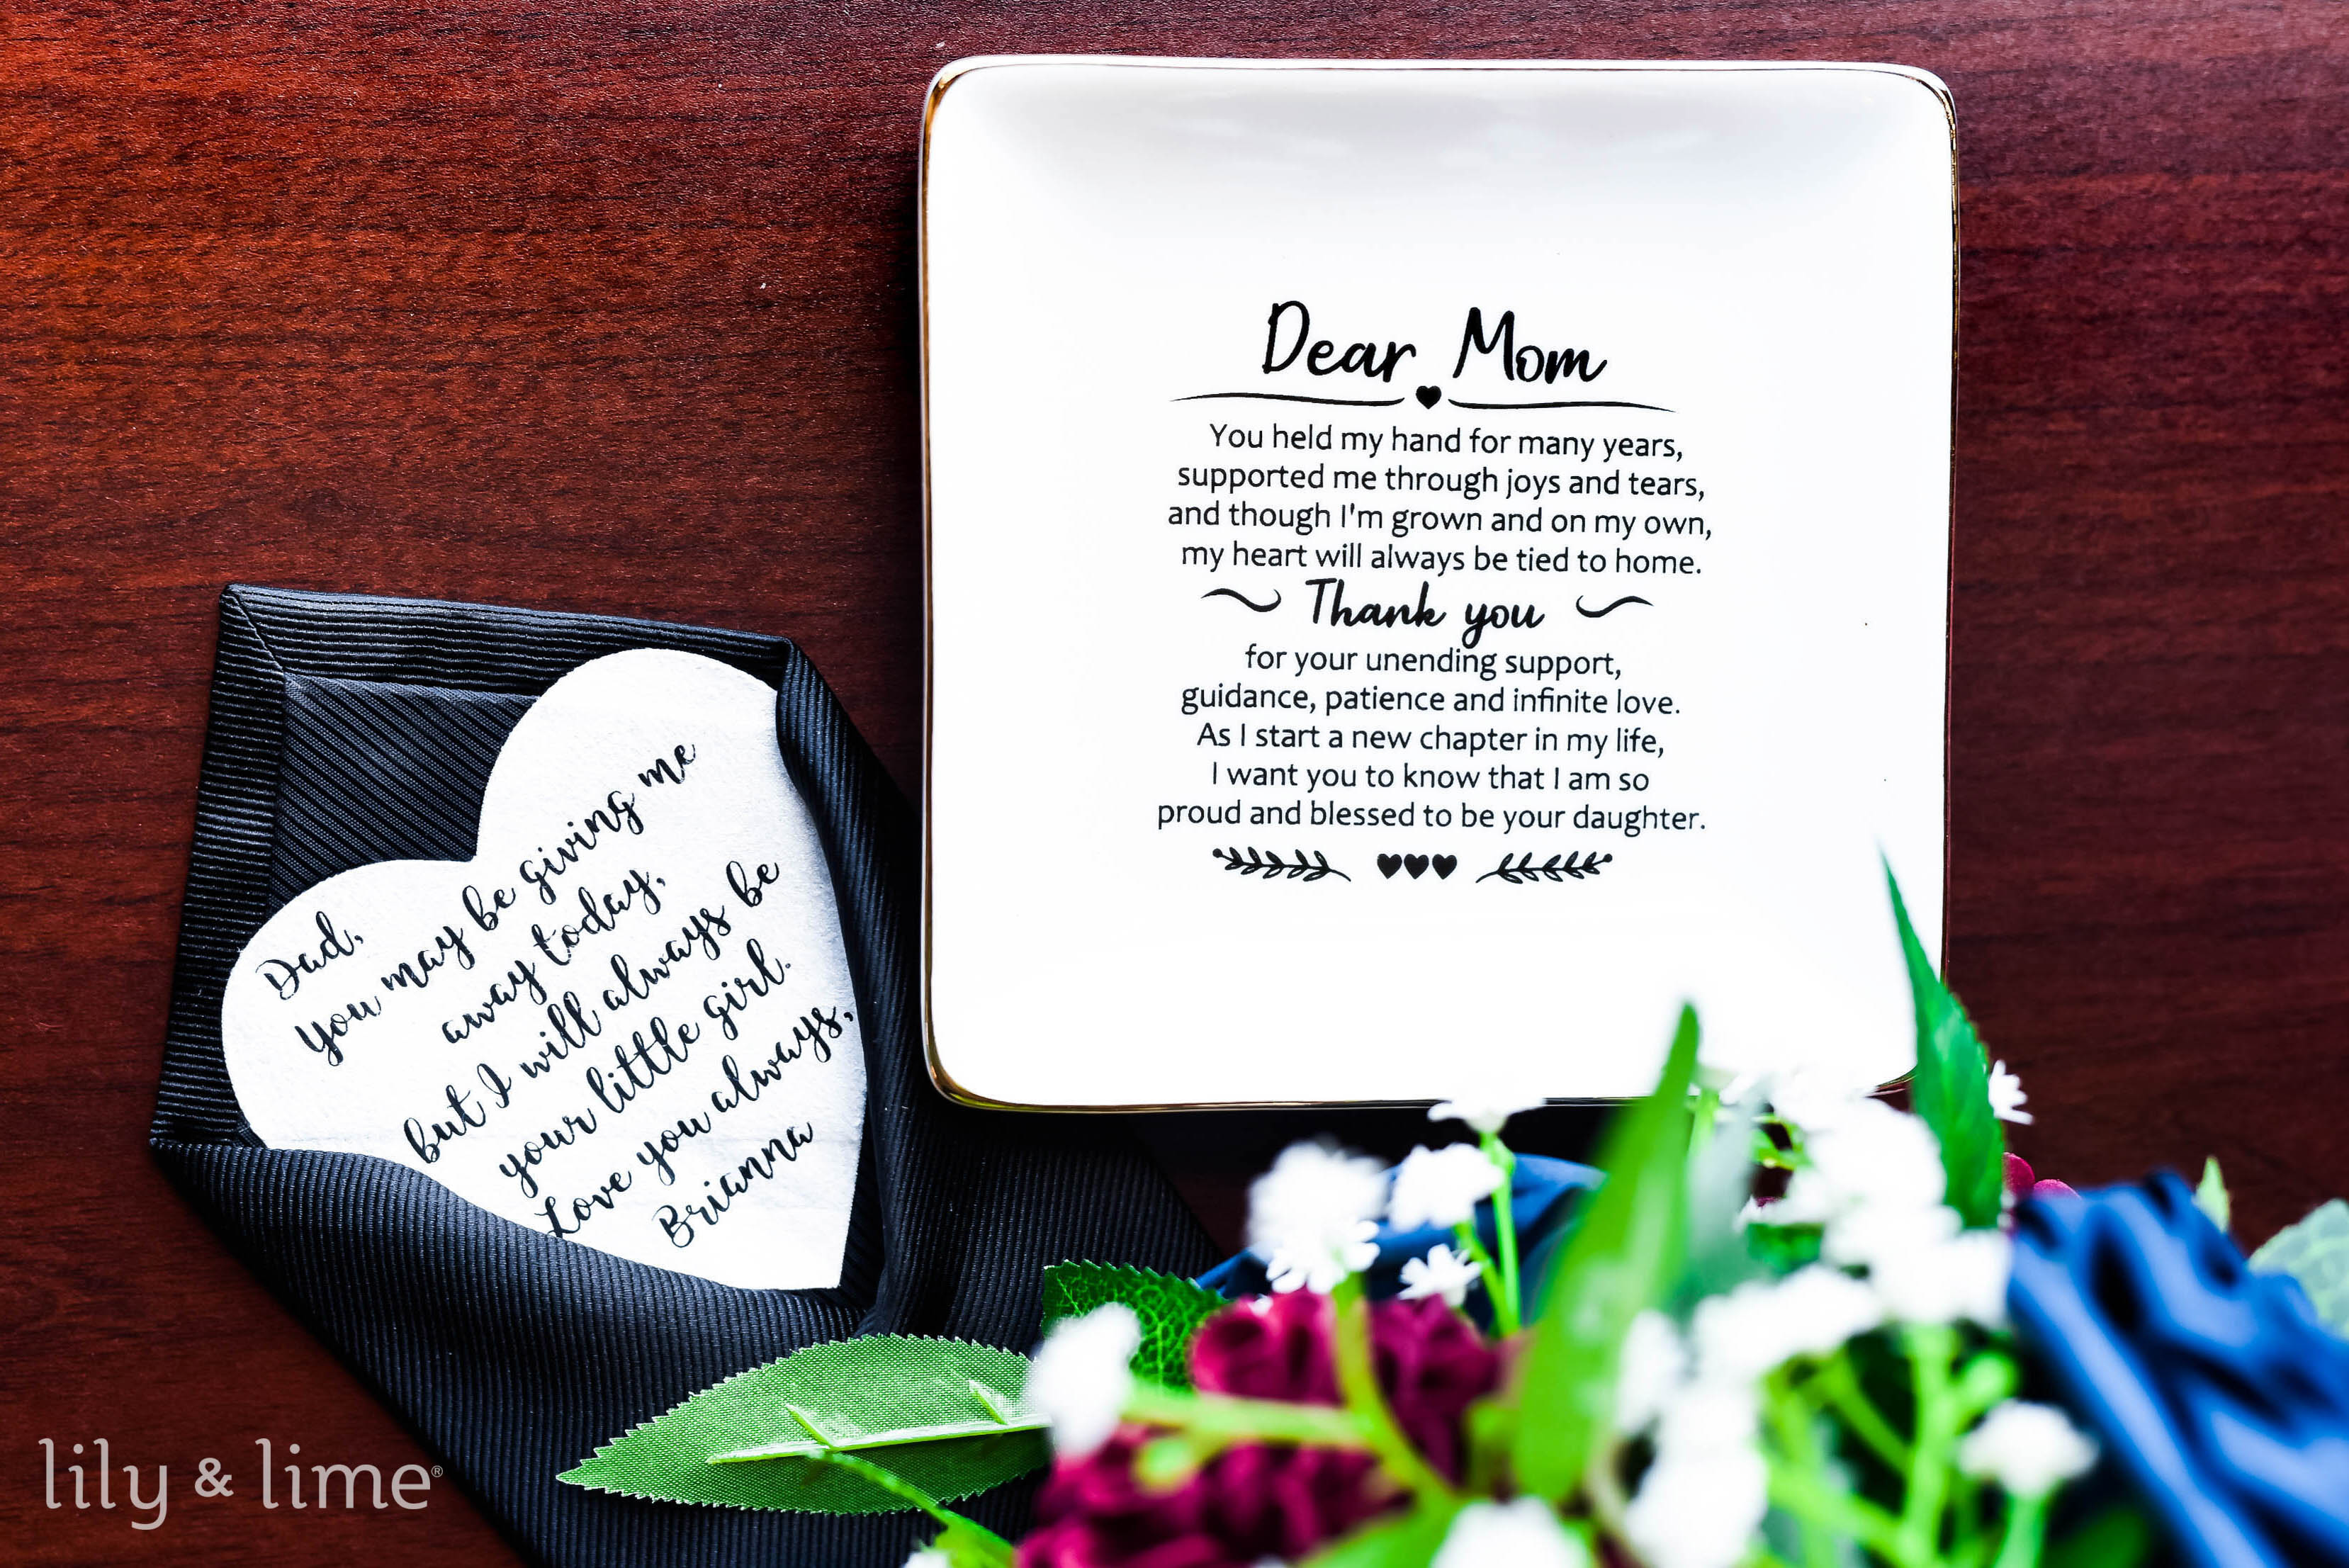 Dear Mom
You held my hand for many years,
supported me through joys and tears,
and though I'm grown and on my own,
my heart will always be tied to home.
Thank you
for your unending support,
guidance, patience and infinite love.
As I start a new chapter in my life,
I want you to know that I am so
proud and blessed to be your daughter.
Dad,
you may be giving me
away today,
but I will always be
your little girl.
Love you always,
Brianna
lily & lime®